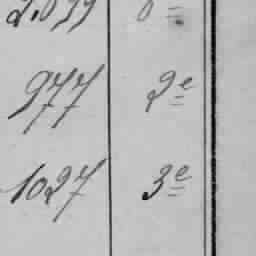 977 2e
1027 3e